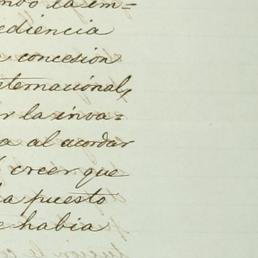 ando la im-
ediencia
a concesion
nternacional,
r la inva-
a al acordar
creer que
ha puesto
e habia